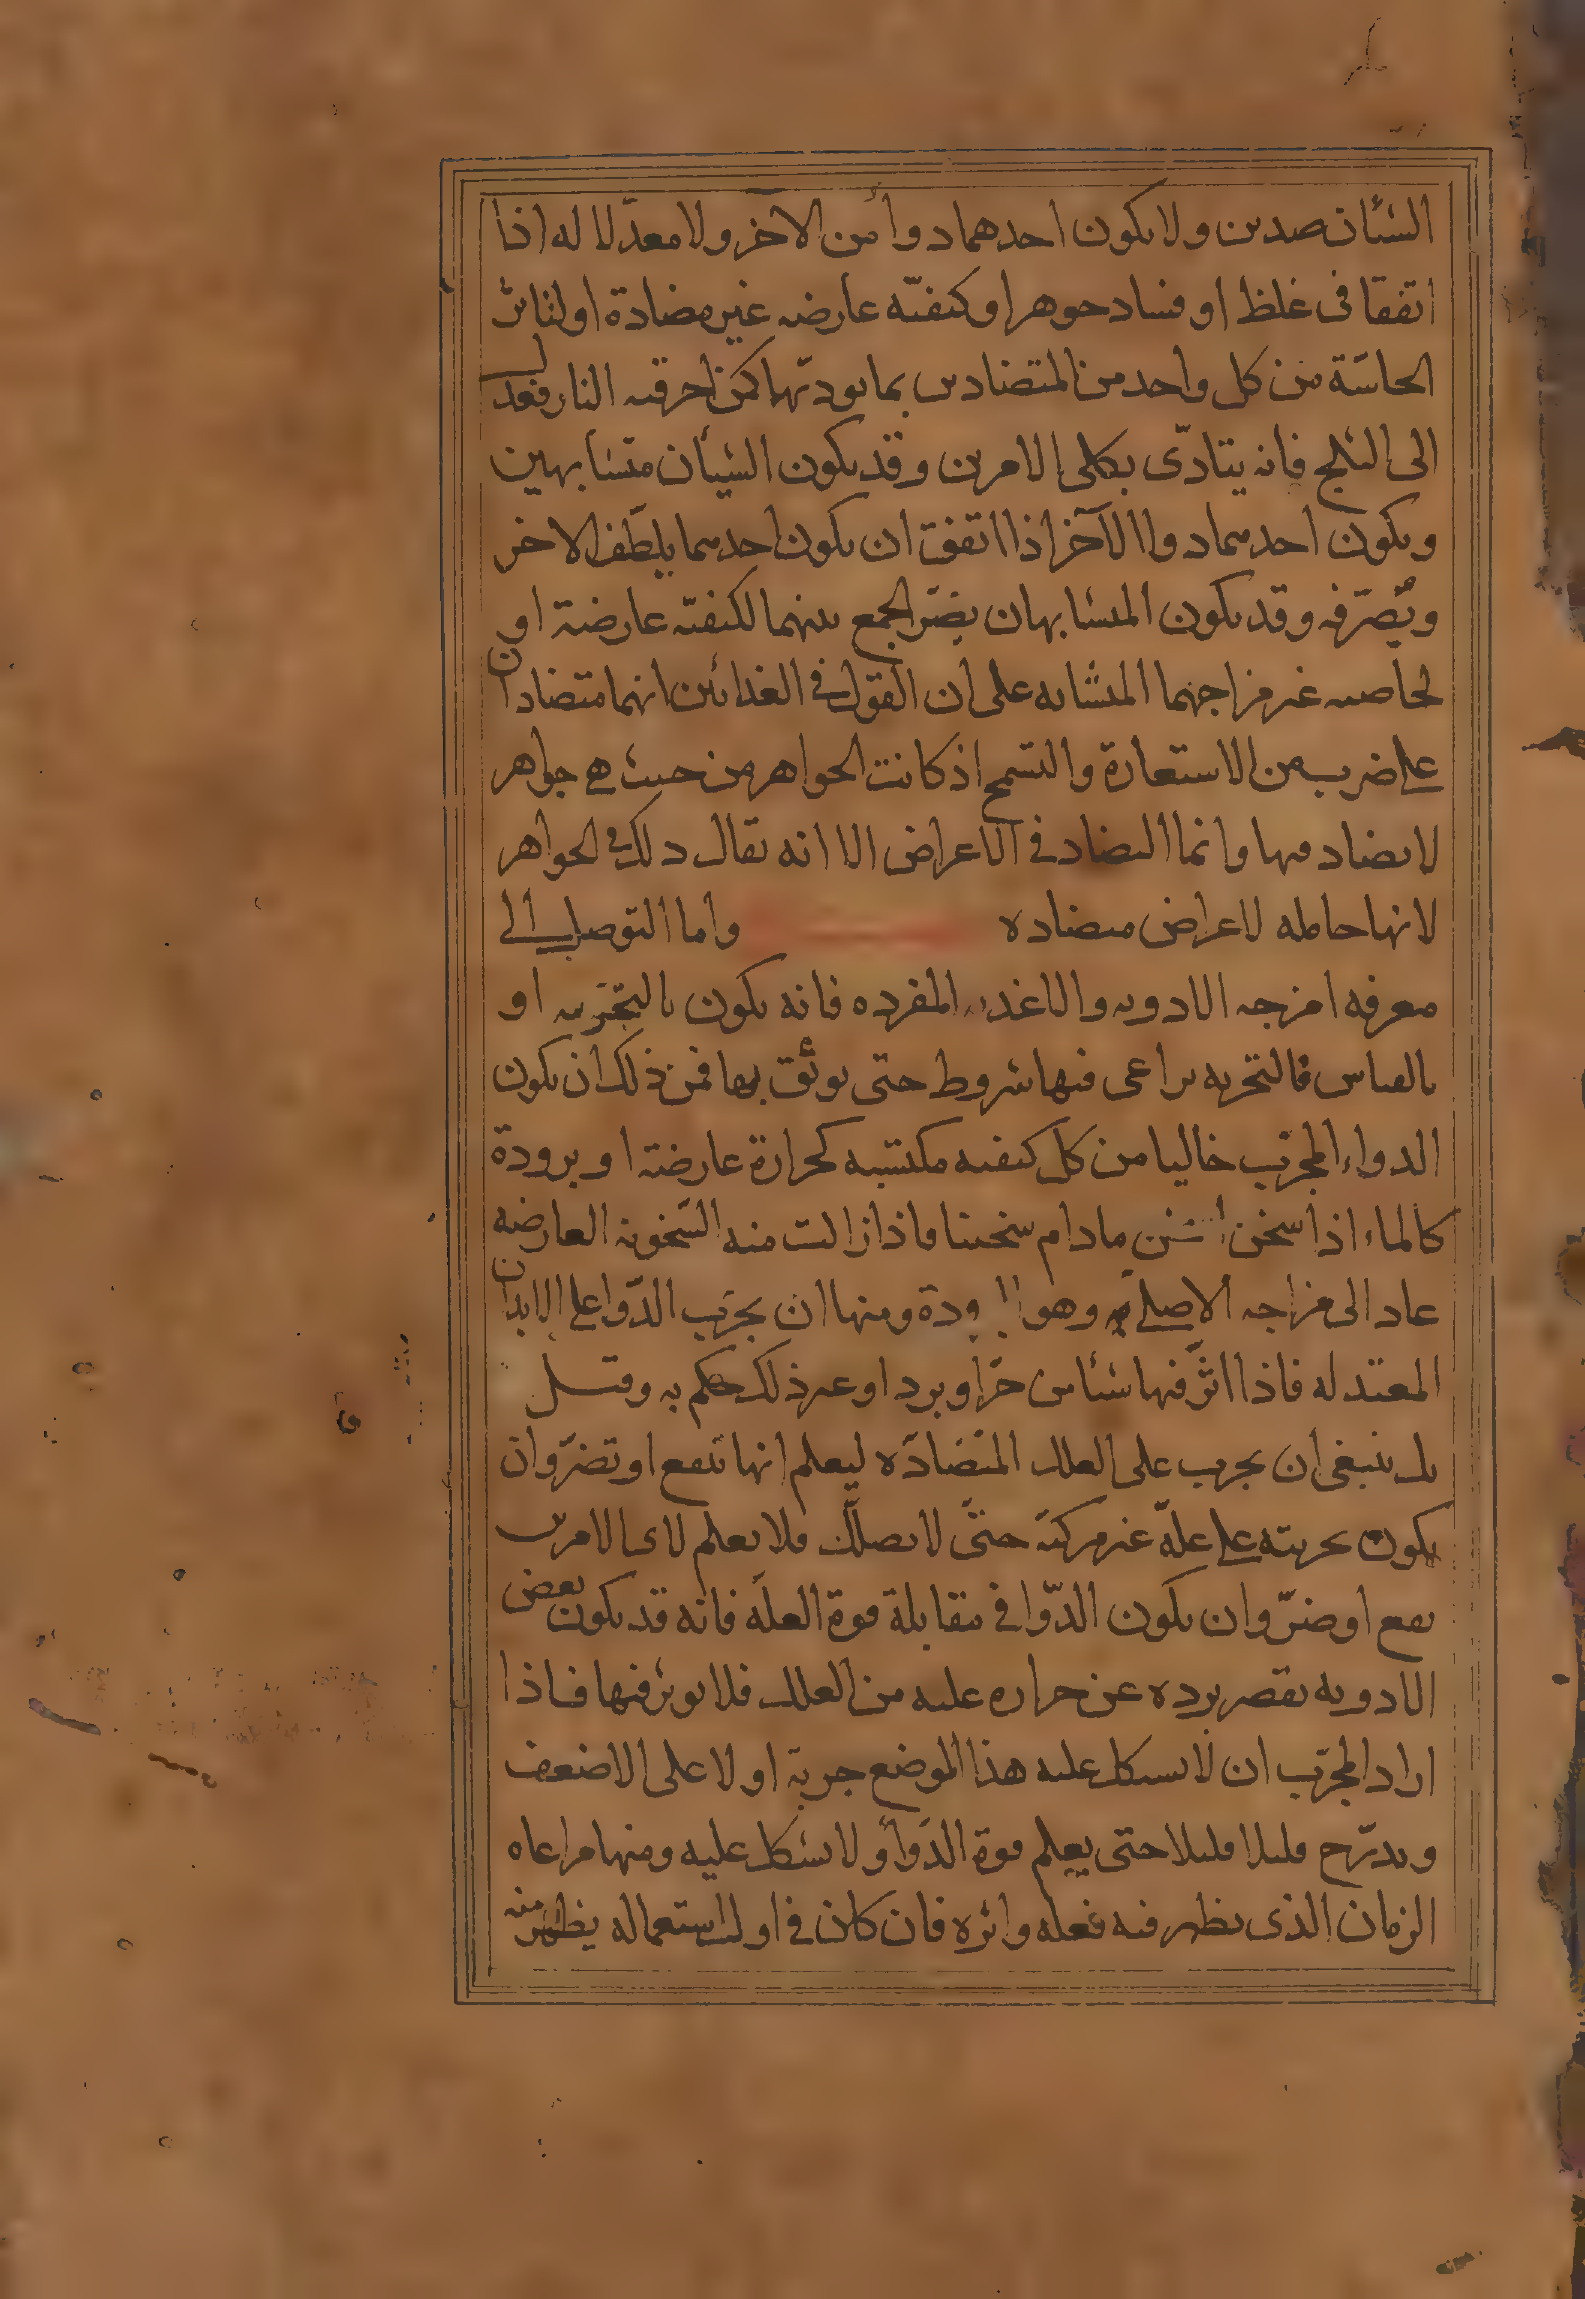 الشئان ضدين ولا يكون احدهما دواً من الآخر ولا معدّلا له اذا
اتفقا فى غلظ او فساد جوهر او كيفيّه عارضه غير مضادة او لتاثر
الحاسّة من كل واحد من المتضادين بما يوديها كمن احرقه النار فعدل
الى الثلج فانه يتاذّى بكلى الامرين وقد يكون الشيأن متشابهين
ويكون احدهما دوا الآخر اذا اتفق ان يكون احدهما يلطّف الاخر
ويُصرّفه وقد يكون المتشابهان يضرّ الجمع بينهما لكيفيّه عارضة او
لخاصيه غير مزاجهما المتشابه على ان القول فى الغدائين انهما متضادان
على ضرب من الاستعارة والتسمح اذ كانت الجواهر من حيث هى جواهر
لا تضاد فيها وانما التضاد فى الاعراض الا انه يقال ذلك فى الجواهر
لانها حامله لاعراض متضاده واما التوصل الى
معرفه امزجه الادويه والاغديه المفرده فانه يكون بالتجربه او
بالقياس فالتجربه يراعى فيها شروط حتى يوثق بها فمن ذلك ان يكون
الدواء المجرّب خاليا من كل كيفيه مكتسبه كحرارة عارضة او برودة
كالماء اذا سخن مادام سخينا فاذا زالت منه السّخونه العارضه
عاد الى مزاجه الاصلى وهو البرودة ومنها ان يجرّب الدّوا على الابدان
المعتدله فاذا اثّر فيها شئا من حرّ او برد او غير ذلك حكم به وقيل
بل ينبغى ان يجرب على العلل المتضادّه ليعلم انها تنفع او تضرّ وان
يكون تجربته على علّة غير مركبّة حتّى لا يصلّل فلا يعلم لاى الامرين
نفع او ضرّ وان يكون الدّوا فى مقابلة قوة العلّه فانه قد يكون بعض
الادويه يقصر برده عن حراره عليه من العلل فلا يوثر فيها فاذا
اراد المجرّب ان لا يشكل عليه هذا الموضع جربه اولا على الاضعف
ويدرّج قليلا قليلا حتى يعلم قوة الدّوأ ولا يشكل عليه ومنها مراعاه
الزمان الذى يظهر فيه فعله واثره فان كان فى اول استعماله يظهر منه